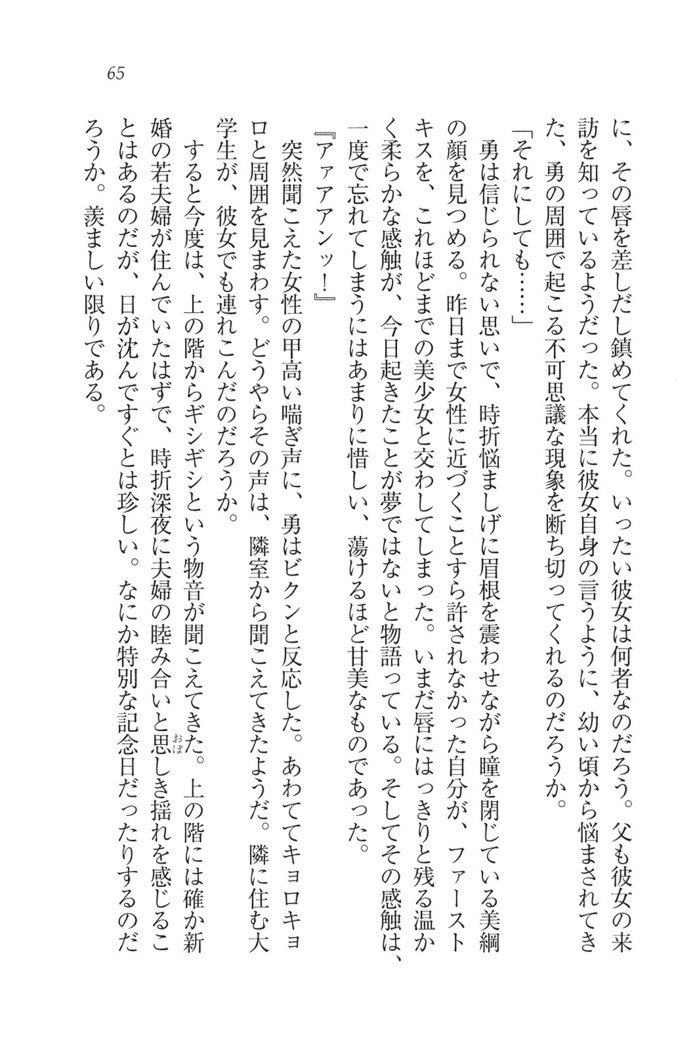 65
に、その唇を差しだし鎮めてくれた。いったい彼女は何者なのだろう。父も彼女の来
訪を知っているようだった。本当に彼女自身の言うように、幼い頃から悩まされてき
た、勇の周囲で起こる不可思議な現象を断ち切ってくれるのだろうか。
「それにしても……」
勇は信じられない思いで、時折悩ましげに眉根を震わせながら瞳を閉じている美綱
の顔を見つめる。昨日まで女性に近づくことすら許されなかった自分が、ファースト
キスを、これほどまでの美少女と交わしてしまった。いまだ唇にはっきりと残る温か
く柔らかな感触が、今日起きたことが夢ではないと物語っている。そしてその感触は、
一度で忘れてしまうにはあまりに惜しい、蕩けるほど甘美なものであった。
『アァアアンッ！』
突然聞こえた女性の甲高い喘ぎ声に、勇はビクンと反応した。あわててキョロキョ
ロと周囲を見まわす。どうやらその声は、隣室から聞こえてきたようだ。隣に住む大
学生が、彼女でも連れこんだのだろうか。
すると今度は、上の階からギシギシという物音が聞こえてきた。上の階には確か新
婚の若夫婦が住んでいたはずで、時折深夜に夫婦の睦み合いと思しき揺れを感じるこ
とはあるのだが、日が沈んですぐとは珍しい。なにか特別な記念日だったりするのだ
ろうか。羨ましい限りである。
おぼ